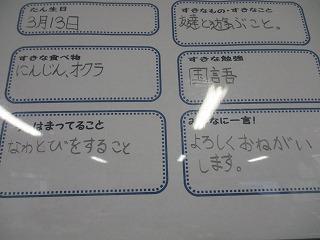 たん生日
3月13日
すきなもの・すきなこと
友達と遊ぶこと。
すきな食べ物
にんじん、オクラ
すきな勉強
国語
はまってること
なわとびをすること
なに一言!
よろしくおねがい
します。